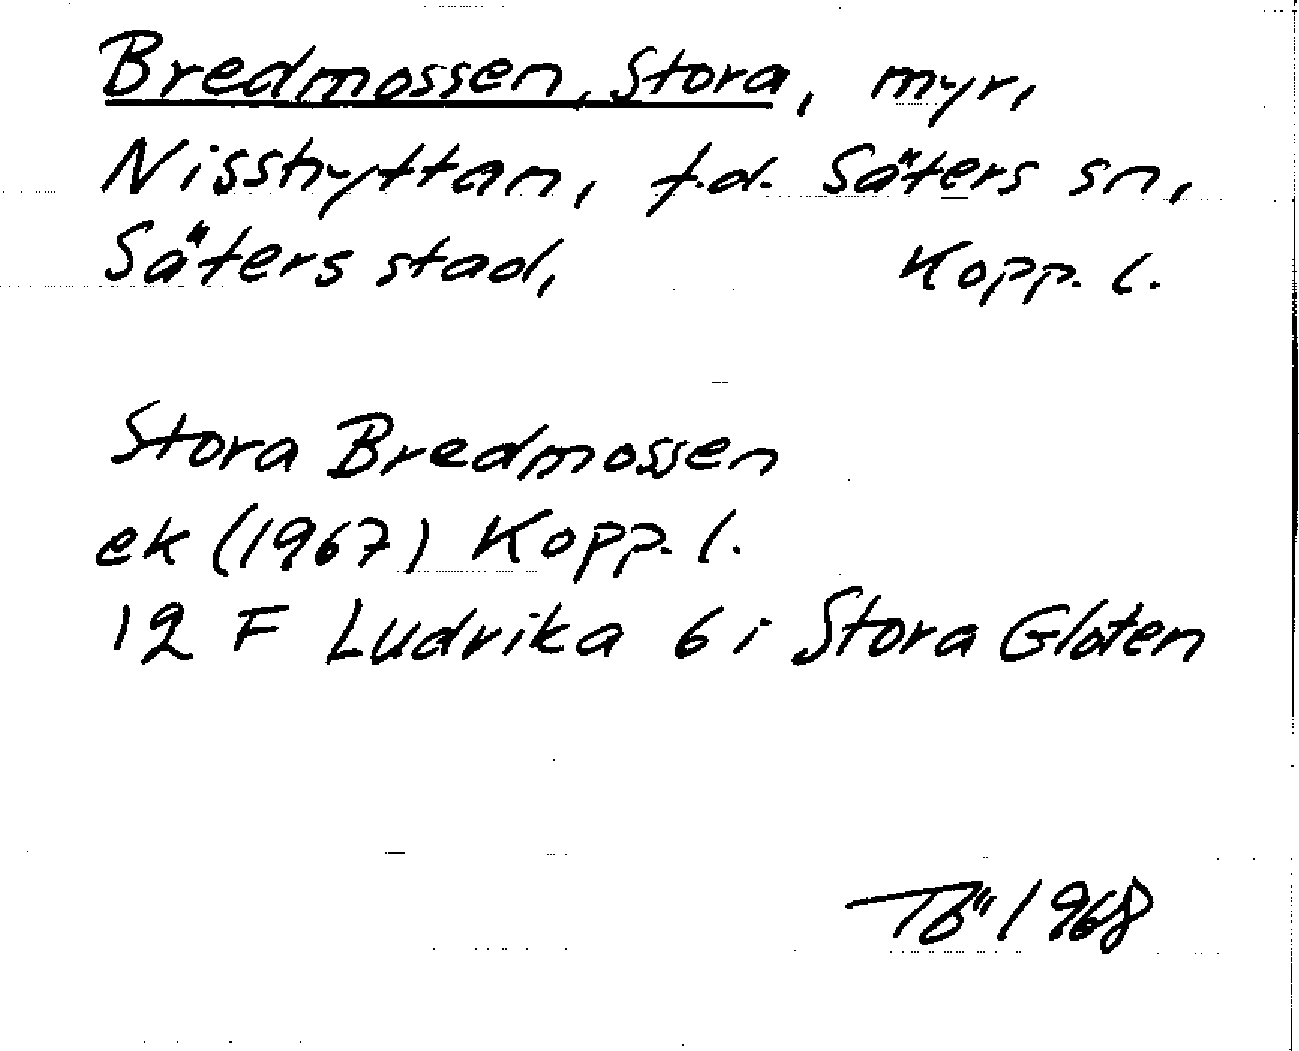 Bredmossen, Stora, myr,
Nisshyttan, f.d. Säters sn,
Säters stad, Kopp. l.
Stora Bredmossen
ek (1967) Kopp. l.
12 F Ludvika 6 i Stora Gloten
1968